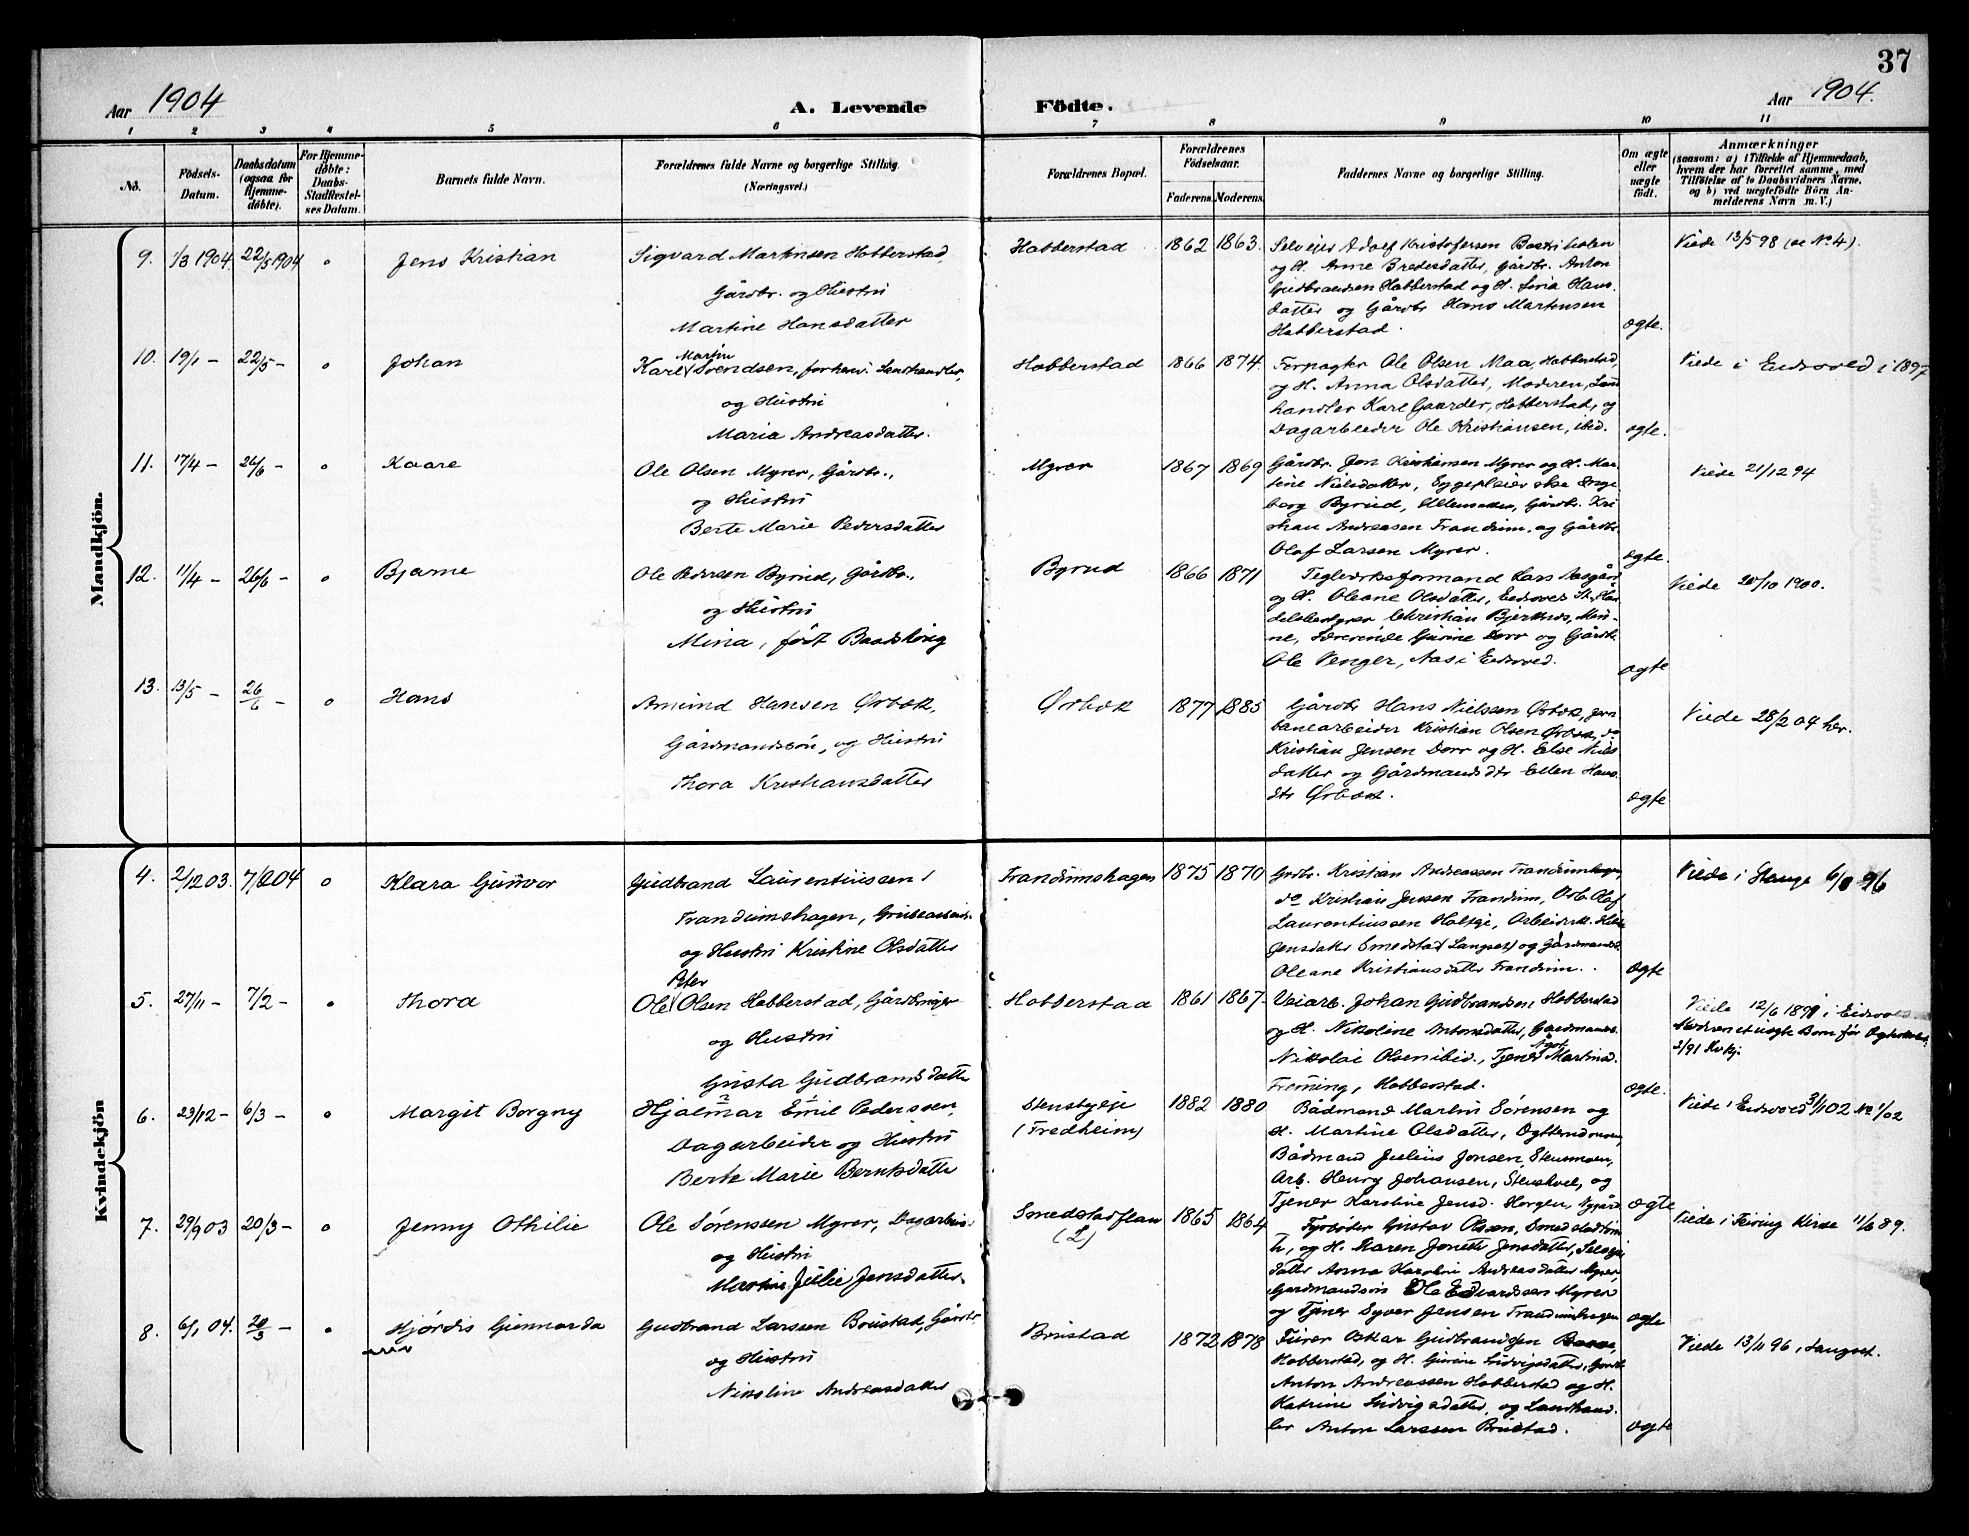 37
Aar 1904
A. Levende Födte.
Aar 1904.
1 2 3 4 5 6 7 8 9 10 11
No.
Födsels-
Datum.
Daabsdatum
(ogsaa for
Hjemme-
døbte).
For Hjemme-
døbte:
Daabs-
Stadfæstel-
ses Datum.
Barnets fulde Navn.
Forældrenes fulde Navne og borgerlige Stilling.
(Næringsvei.)
Forældrenes Bopæl.
Forældrenes
Födselsaar.
Faderens. Moderens.
Faddernes Navne og borgerlige Stilling.
Om ægte
eller
uægte
født.
Anmærkninger
(saasom: a) i Tilfælde af Hjemmedaab,
hvem der har forrettet samme, med
Tilföielse af to Daabsvidners Navne,
og b) ved uægtefödte Börn An-
melderens Navn m. V.)
Mandkjön.
9. 1/3 1904 22/5 1904 o Jens Kristian
Sigvard Martinsen Hobberstad,
Gårdbr. og Hustru
Martine Hansdatter
Hobberstad 1862 1863.
Selveier Adolf Kristofersen
og H. Anne Bredesdatter, gårdbr. Anton
Gudbrandsen Hobberstad og H. Hans-
datter og Gårdbr Hans Martinsen
Hobberstad.
ægte.
Viede 13/5 98 (se No 4).
10. 19/1 - 22/5 - o Johan
Martin
Karl Svendsen, forhenv. Landhandler,
og Hustru
Maria Andreasdatter.
Hobberstad 1866 1874.
Forpagter Ole Olsen Maa, Hobberstad,
og H. Anna Olsdatter, Moderen, Land
handler Karl Gaarder, Hobberstad, og
Dagarbeider Ole Kristiansen, ibid.
ægte.
Viede i Eidsvold i 1897
11. 17/4 - 26/6 - o Kaare
Ole Olsen Myrer, Gårdbr.,
og Hustru
Berte Marie Pedersdatter
Myrer 1867 1869
Gårdbr. Jon Kristiansen Myrer og H. Mar-
tine Nielsdatter,
berg Byrud, Gårdbr. Kri
stian Andreasen Frandum, og Gårdbr.
Olaf Larsen Myrer.
ægte.
Viede 21/12 94
12. 11/4 - 26/6 - o Bjarne
Ole Pedersen Byrud, Gårdbr.,
og Hustru
Mina, født
Byrud 1866 1871
Teglverksformand Lars
og H. Oleane Olsdatter,
Christian Bjerknes, Min-
ne, Lærerinde Gurine Dorr og Gårdb.
Ole Venger, Aas i Eidsvold.
ægte
Viede 20/10 1900.
13. 13/5 - 26/6 - o Hans
Amund Hansen Ørbæk,
Gårdmandssøn, og Hustru
Thora Kristiansdatter
Ørbæk 1877 1885
Gårdbr Hans Nielssen Ørbæk, jern
banearbeider Kristian Olsen Ørbæk, do
Kristian Jensen Dorr og H. Else Niels
datter og Gårdmandsdtr Ellen Hans
dtr Ørbæk.
ægte
Viede 28/2 04 her.
Kvindekjön
4. 2/12 03. 7/2 04 o Klara Gunvor
Gudbrand Laurentiussen
Frandumshagen, Grubearbeid.
og Hustru Kristine Olsdatter
Frandumshagen 1875 1870
Grdbr. Kristian Andreassen Frandumhagen,
do Kristian Jensen Frandum, Arb. Olaf
Laurentiussen Holtje, Arbeidersk.
Jensdatter Smedstad (Langset) og Gårdmandsd.
Oleane Kristiansdatter Frandum.
ægte
Viede i Stange 96
5. 27/11 - 7/2 - o Thora
Peter
Ole Olsen Hobberstad, Gårdbruger
og Hustru
Gusta Gudbrandsdatter
Hobberstad 1861 1867
Veiarb. Johan Gudbrandsen, Hobberstad
og H. Nikoline Antonsdatter, Gaardmands.
Nikolai Olsen ibid., Tjener Martina
Hobberstad.
ægte.
Viede 12/6 1891 i Eidsvold
2/91
6. 23/12 - 6/3 - o Margit Borgny
Hjalmar Emil Pederssen,
Dagarbeider og Hustru
Berte Marie Berntsdatter
(Fredheim) 1882 1880
Bådmand Martin Sørensen og
H. Martine Olsdatter,
Bådmand Julius Jonsen, Stensmoen,
Arb. Henry Johansen, og
Tjener Karoline Jensd. Horgen,
ægte
Viede i Eidsvold 02 No 1/02
7. 29/9 03 20/3 - o Jenny Othilie
Ole Sørenssen Myrer, Dagarbeid.
og Hustru
Julie Jensdatter
Smedstadflan
(2)
1865 1864
Fyrbøter Gustav Olsen,
og H. Karen Jonette Jensdatter,
datter Anna Karoline Andreasdatter Myrer,
Gardmandsøn Ole Edvardsen Myrer
og Tjener Syver Jensen Frandumhagen
ægte
Viede i Feiring Kirke 11/6 89.
8. 6/1 04. 20/3 - o Hjørdis Gunnarda
Gudbrand Larssen Brustad, Gårdbr.
og Hustru
Nikoline Andreasdatter
Brustad 1872 1878
Oskar Gudbrandsen
Hobberstad, og H. Gurine Ludvigsdatter, Gårdb
Anton Andreassen Hobberstad og H.
Katrine Ludvigsdatter, og Landhand-
ler Anton Larssen Brustad.
ægte
Viede 13/11 96 i Langset.